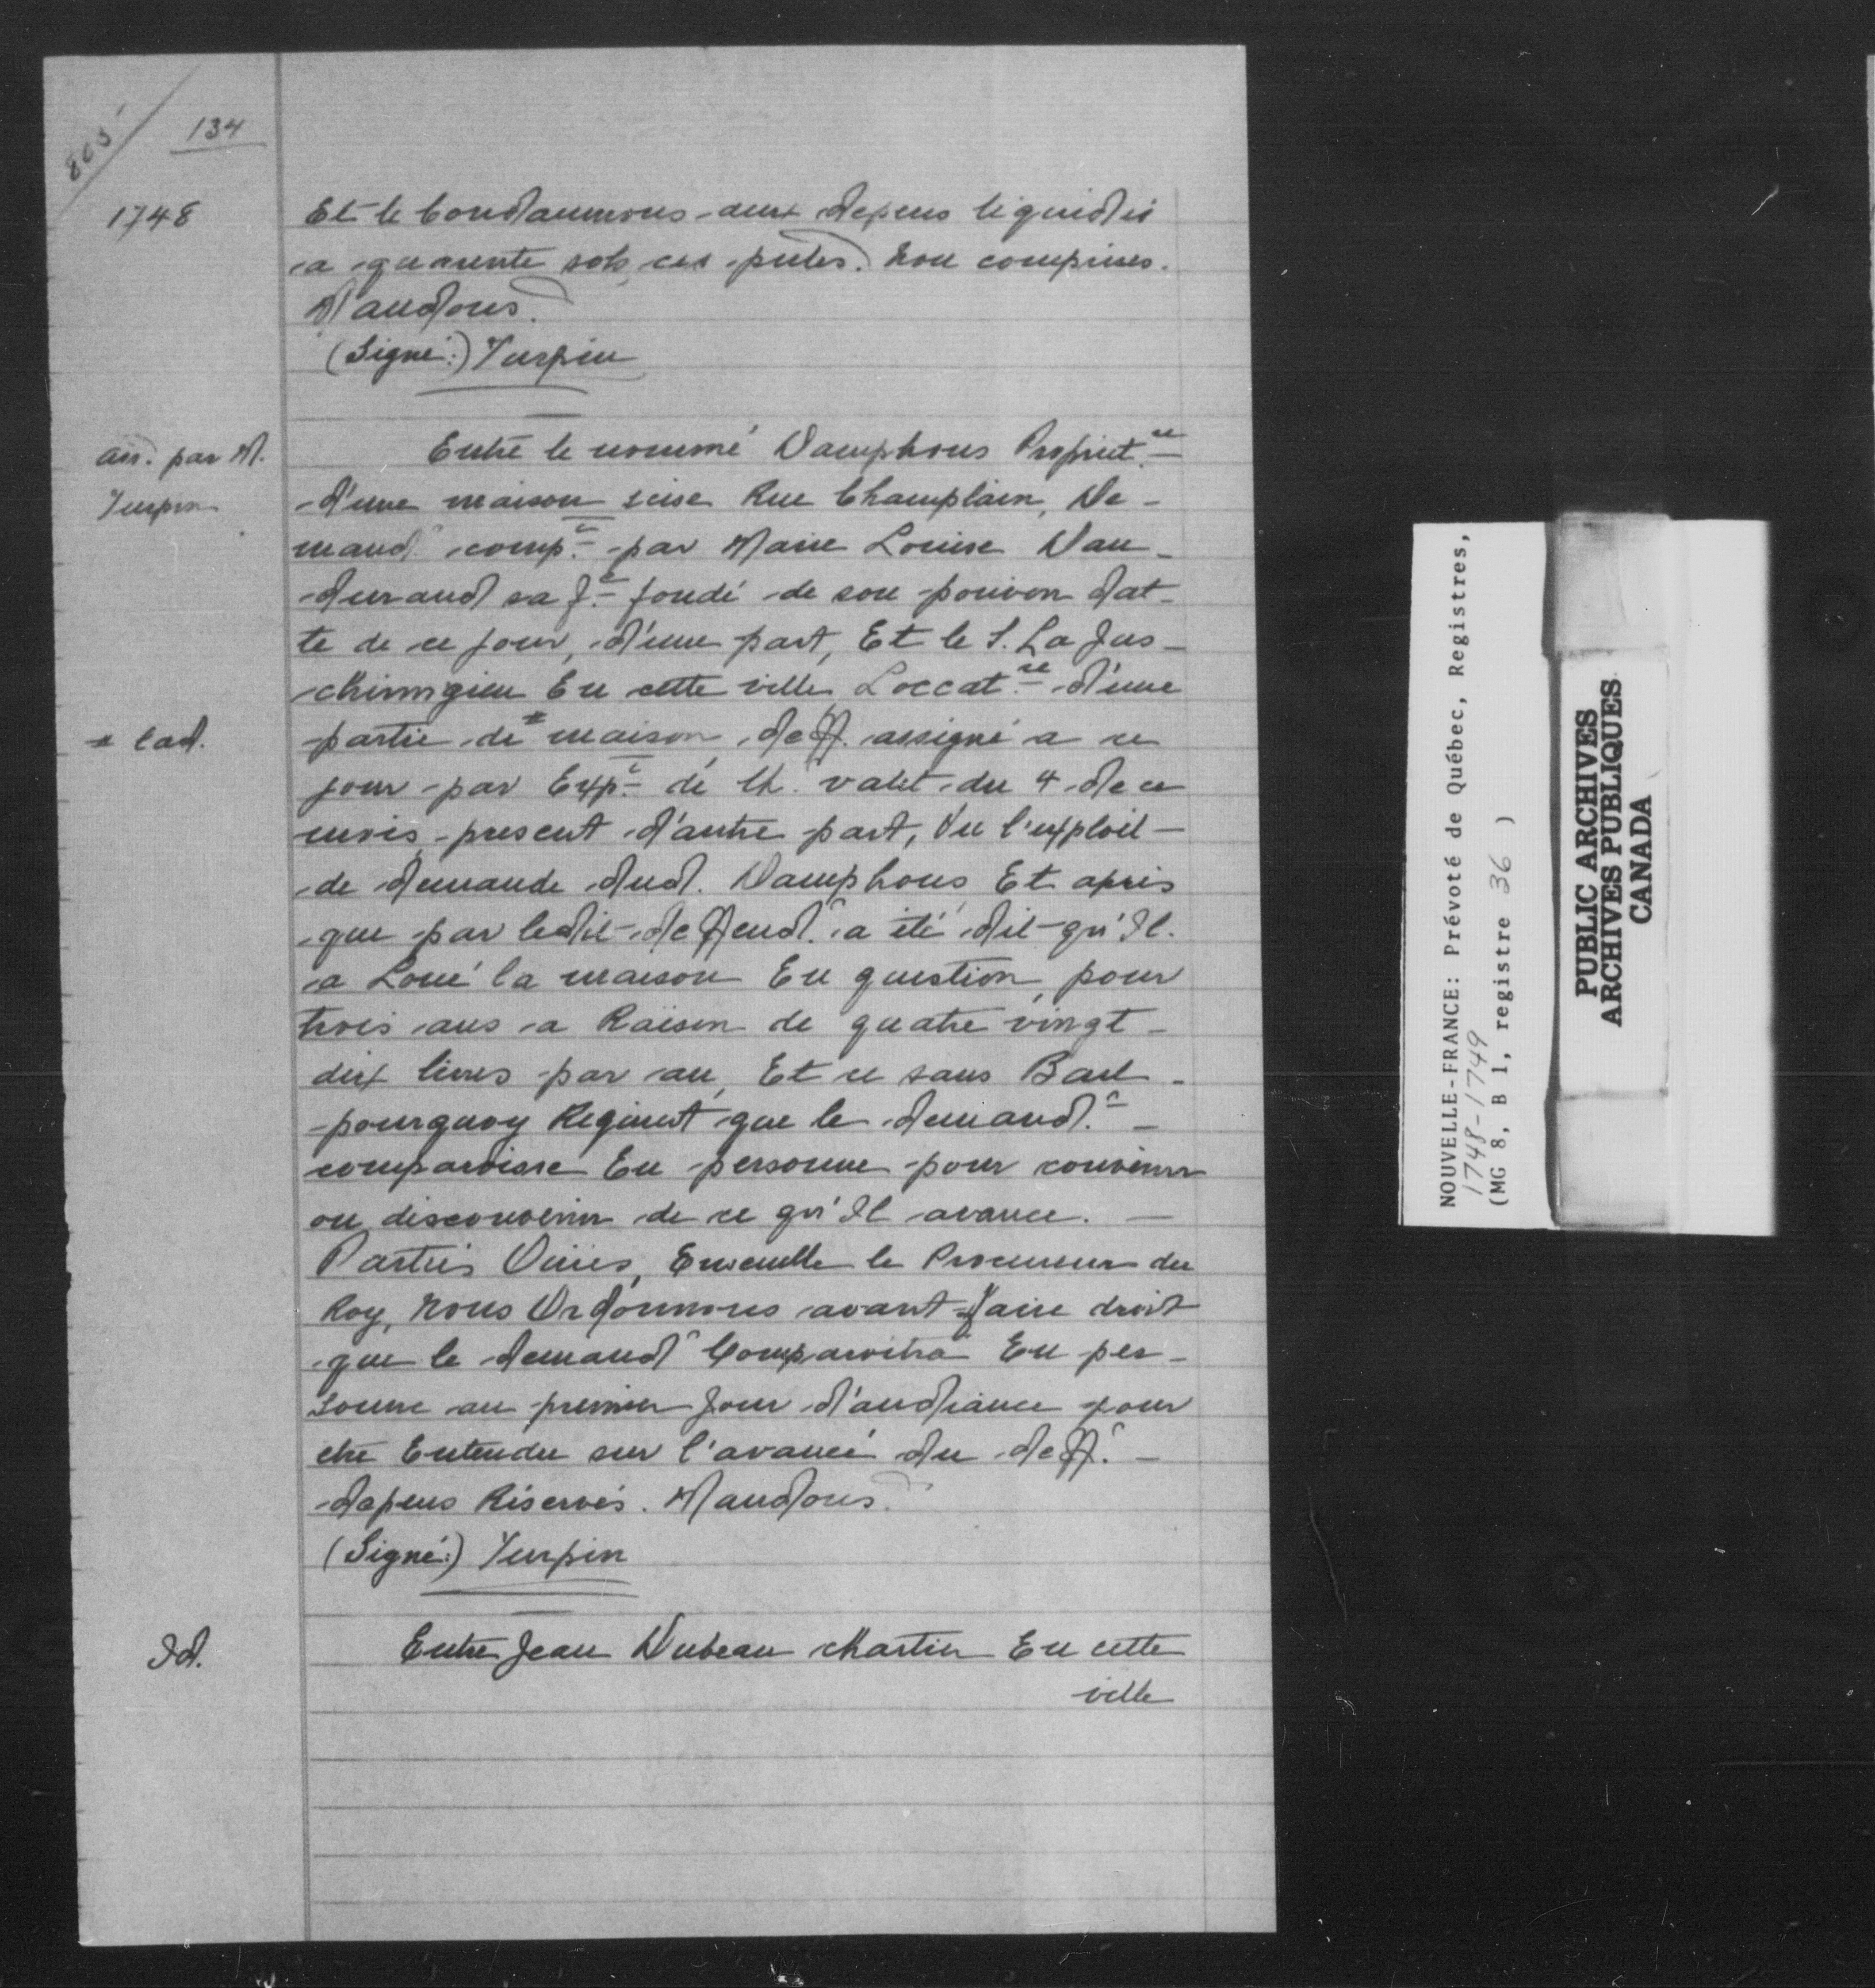 805
134
1748
Et le Condamnons aux depens liquidés
a quarente sols ces pntes. non comprises.
Mandons.
(Signé:) Turpin
au. par M.
Turpin
Entre le nommé Damphous Propriet.re
d'une maison scise Rue Champlain, De-
mand comp.t par Marie Louise Van-
durand sa f.e fondé de son pouvoir dat-
te de ce jour, d'une part, Et le S. La Jus
chirurgien En cette ville Loccat.re d'une
* lad.
partie de * maison, deff. assigné a ce
jour par Exp.t de Ch. valet du 4 de ce
mois present d'autre part, Vu l'exploit
de demande dud. Damphous, Et après
que par ledit deffend.r a été dit qu'Il
a Loué la maison En question, pour
trois ans a Raison de quatre vingt
dix livres par an, Et ce sans Bail
pourquoy Requert que le demand.r
comparoisse En personne pour convenir
ou disconvenir de ce qu'Il avance.
Parties Ouïes, Ensemble le Procureur du
Roy, nous Ordonnons avant faire droit
que le demand.r Comparoitra En per-
sonne au premier Jour d'audiance pour
etre Entendu sur l'avancé du deff.r
depens Réservés. Mandons.
(Signé:) Turpin
Id.
Entre Jean Dubeau chartier En cette
ville
NOUVELLE-FRANCE: Prévoté de Québec, Registres,
1748-1749
(MG 8, B 1, registre 36 )
PUBLIC ARCHIVES
ARCHIVES PUBLIQUES
CANADA